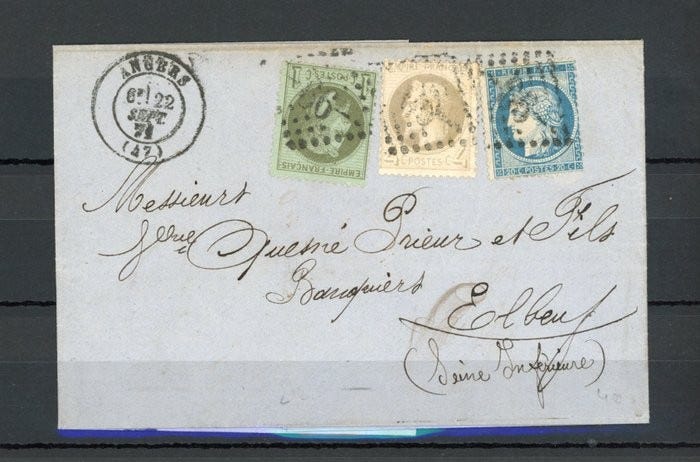 ANGERS
6E 22
SEPT.
71
(47)
POSTES
EMPIRE FRANÇAIS
POSTES
REPUB
20 C POSTES 20 C
Messieurs
Quesné Prieur et Fils
Banquiers
Elbeuf
(Seine Inférieure)